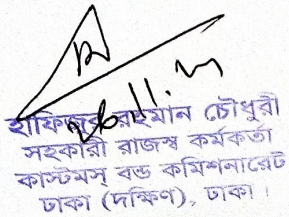 হাফিজুর রহমান চৌধুরী
সহকারী রাজস্ব কর্মকর্তা
কাস্টমস্ বন্ড কমিশনারেট
ঢাকা (দক্ষিণ), ঢাকা।